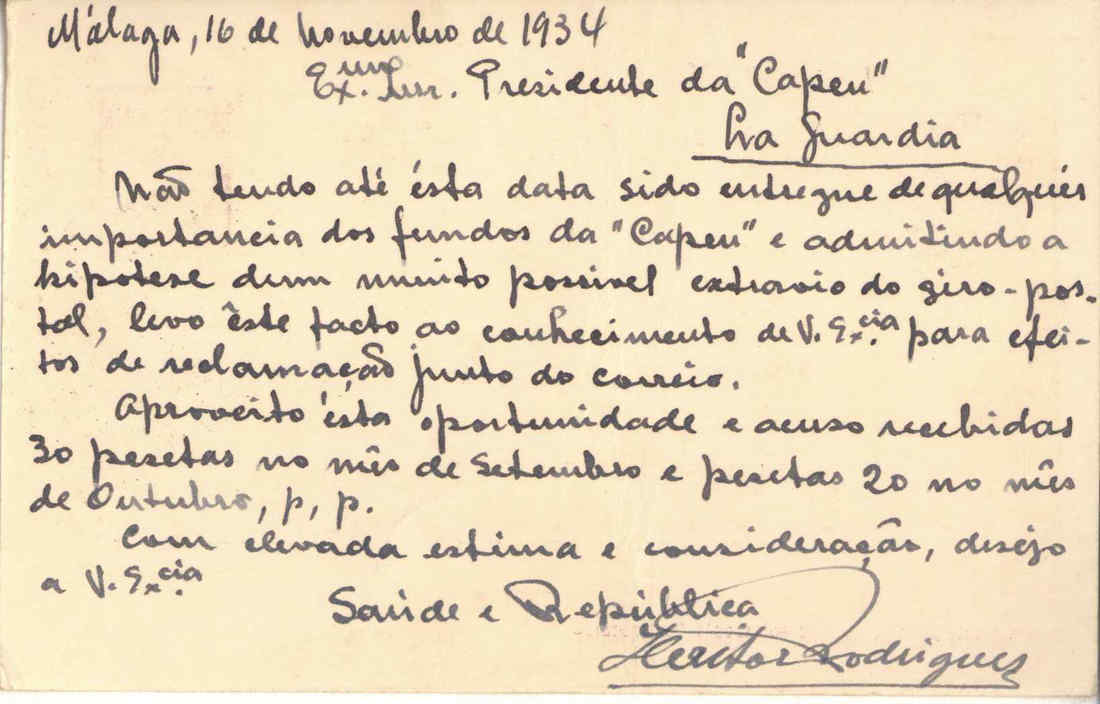 Málaga, 16 de Novembro de 1934
Exmo. Snr. Presidente da "Capeu"
La Guardia
Não tendo até ésta data sido entregue de qualquér
importancia dos fundos da "Capeu" e admitindo a
hipotese dum muito possivel extravio do giro-pos-
tal, levo êste facto ao conhecimento de V. Ex.cia para efei-
tos de reclamação junto do correio.
Aproveito ésta oportunidade e acuso recebidas
30 pesetas no mês de Setembro e pesetas 20 no mês
de Outubro, p, p.
Com elevada estima e consideração, desejo
a V. Ex.cia
Saúde e República
Heitor Rodrigues